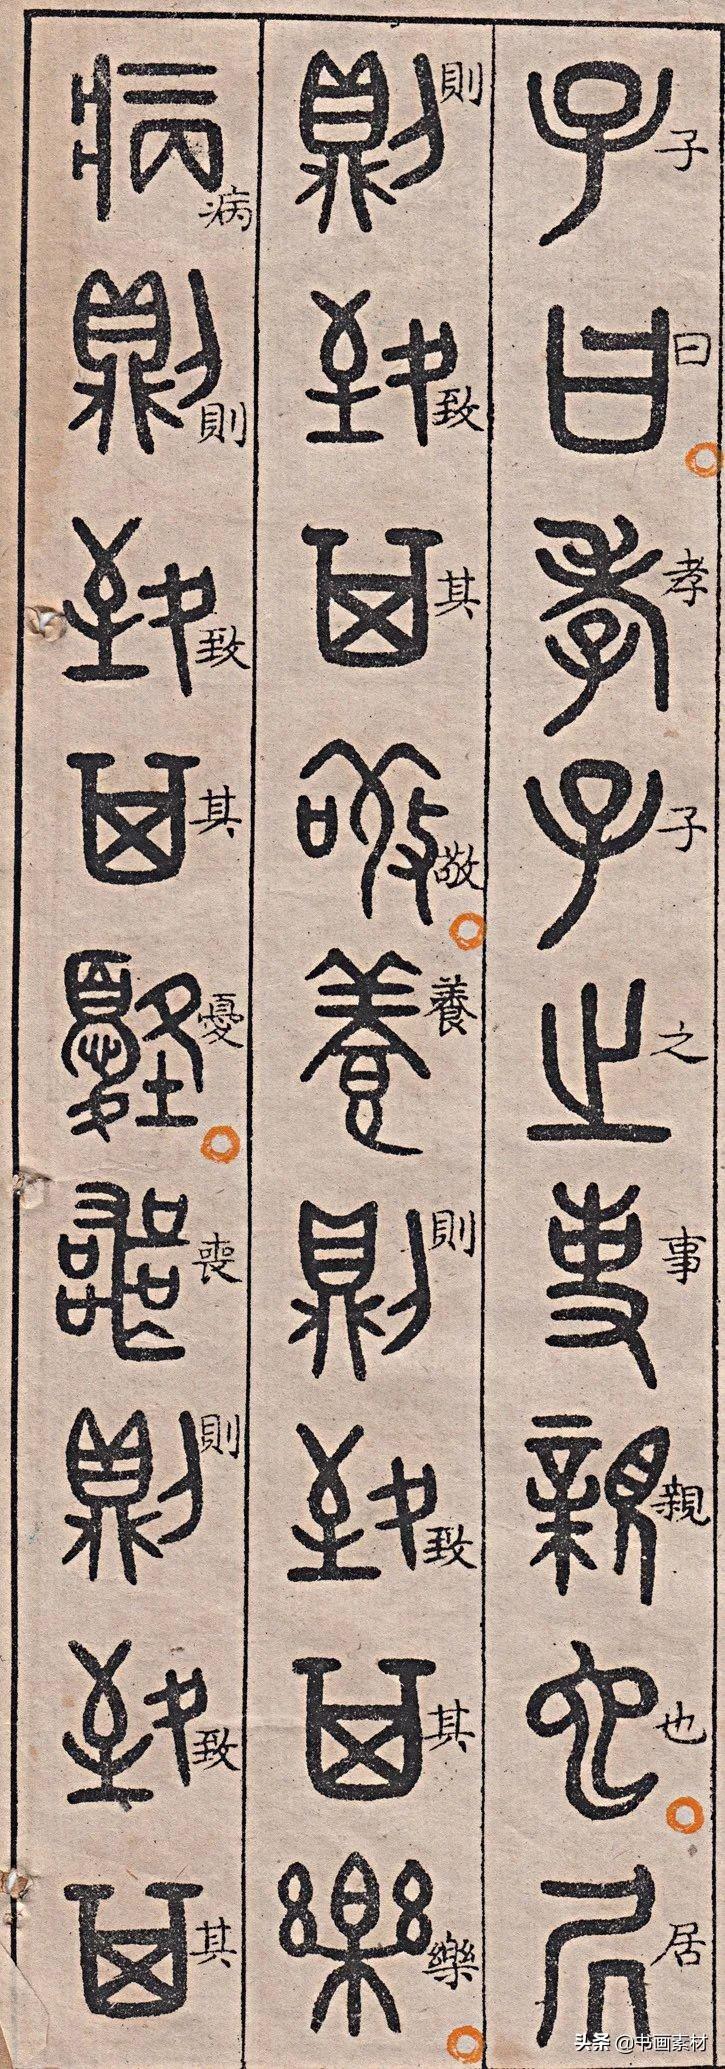 子曰孝子之事親也居
則致其敬養則致其樂
病則致其憂喪則致其
头条 @书画素材